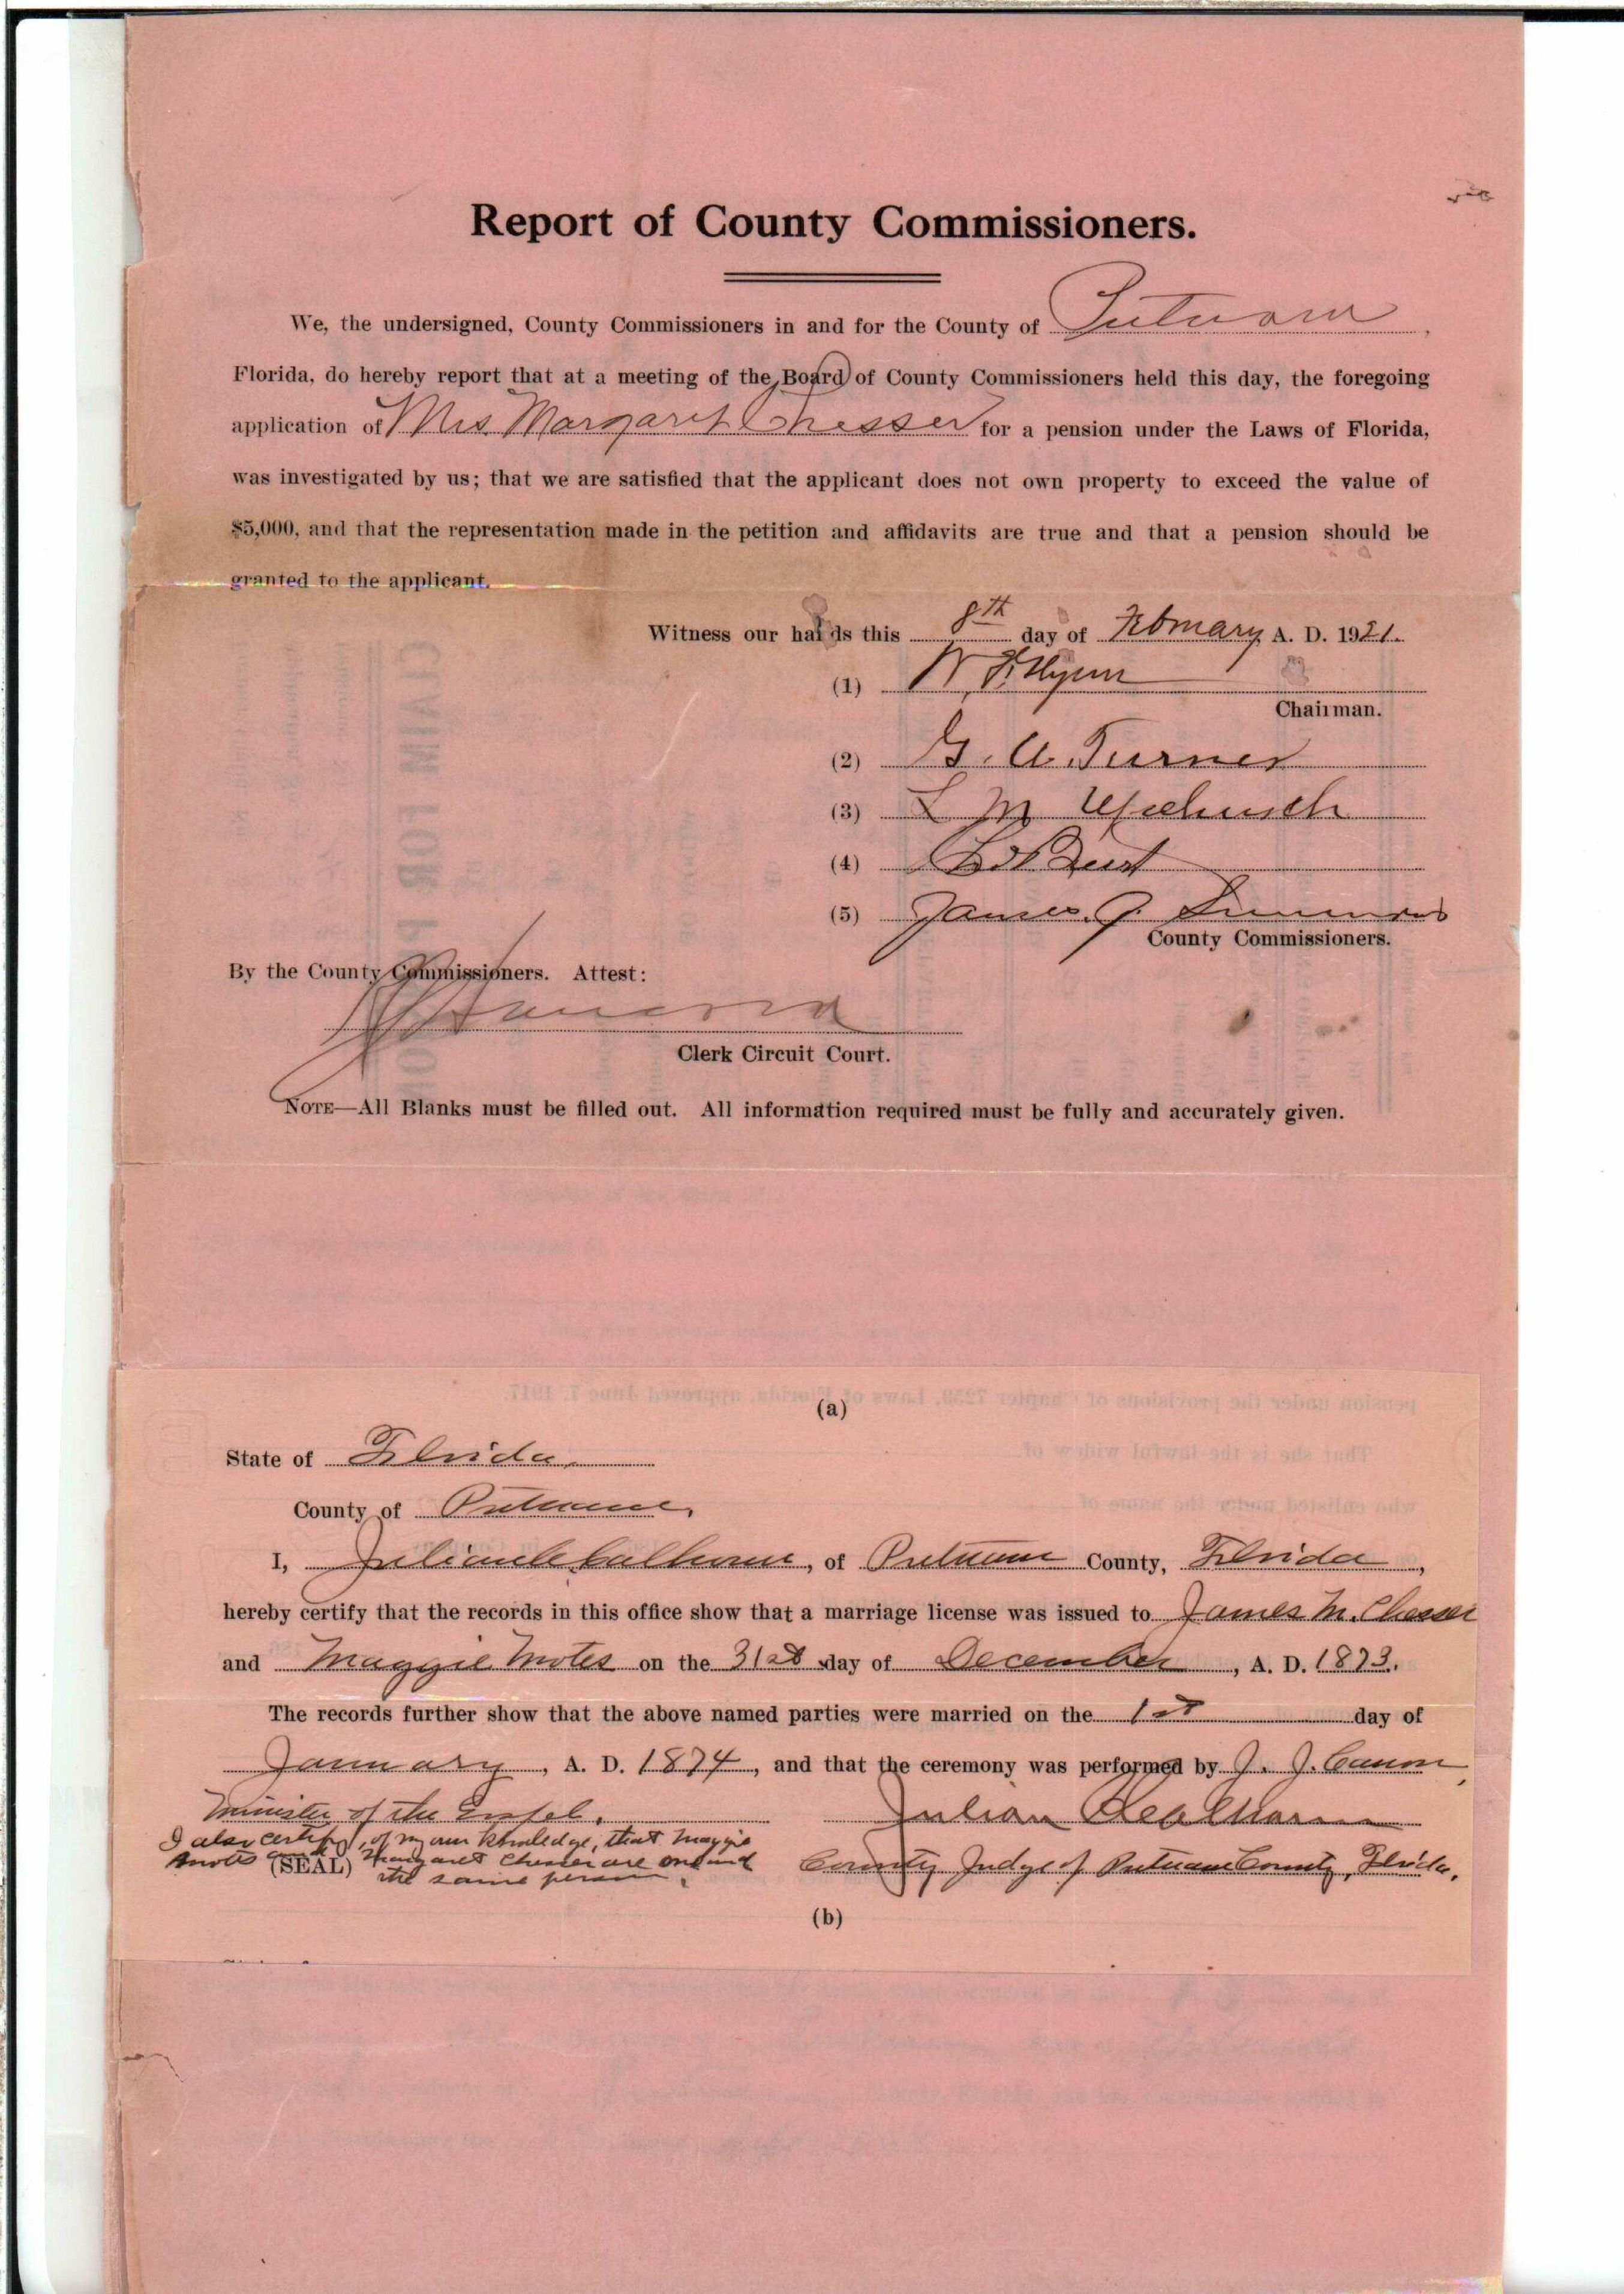 Report of County Commissioners.
We, the undersigned, County Commissioners in and for the County of Putnam
Florida, do hereby report that at a meeting of the Board of County Commissioners held this day, the foregoing
application of Mrs Margaret Chesser for a pension under the Laws of Florida,
was investigated by us; that we are satisfied that the applicant does not own property to exceed the value of
$5,000, and that the representation made in the petition and affidavits are true and that a pension should be
granted to the applicant.
Witness our hands this 8th day of February A. D. 1921.
(1)
Chairman.
(2) G. A. Turner
(3) L M
(4)
(5) James
County Commissioners.
By the County Commissioners. Attest:
Clerk Circuit Court.
NOTE—All Blanks must be filled out. All information required must be fully and accurately given.
(a)
State of Florida,
County of Putnam,
I, Julian C. Calhoun, of Putnam County, Florida,
hereby certify that the records in this office show that a marriage license was issued to James M. Chesser
and Maggie Motes on the 31st day of December, A. D. 1873.
The records further show that the above named parties were married on the 1st day of
January, A. D. 1874, and that the ceremony was performed by J. J. Canon,
Minister of the Gospel. Julian C Calhoun
I also certify, of my own knowledge, that Maggie
Motes and Margaret Chesser are one and
(SEAL) the same person. County Judge of Putnam County, Florida.
(b)